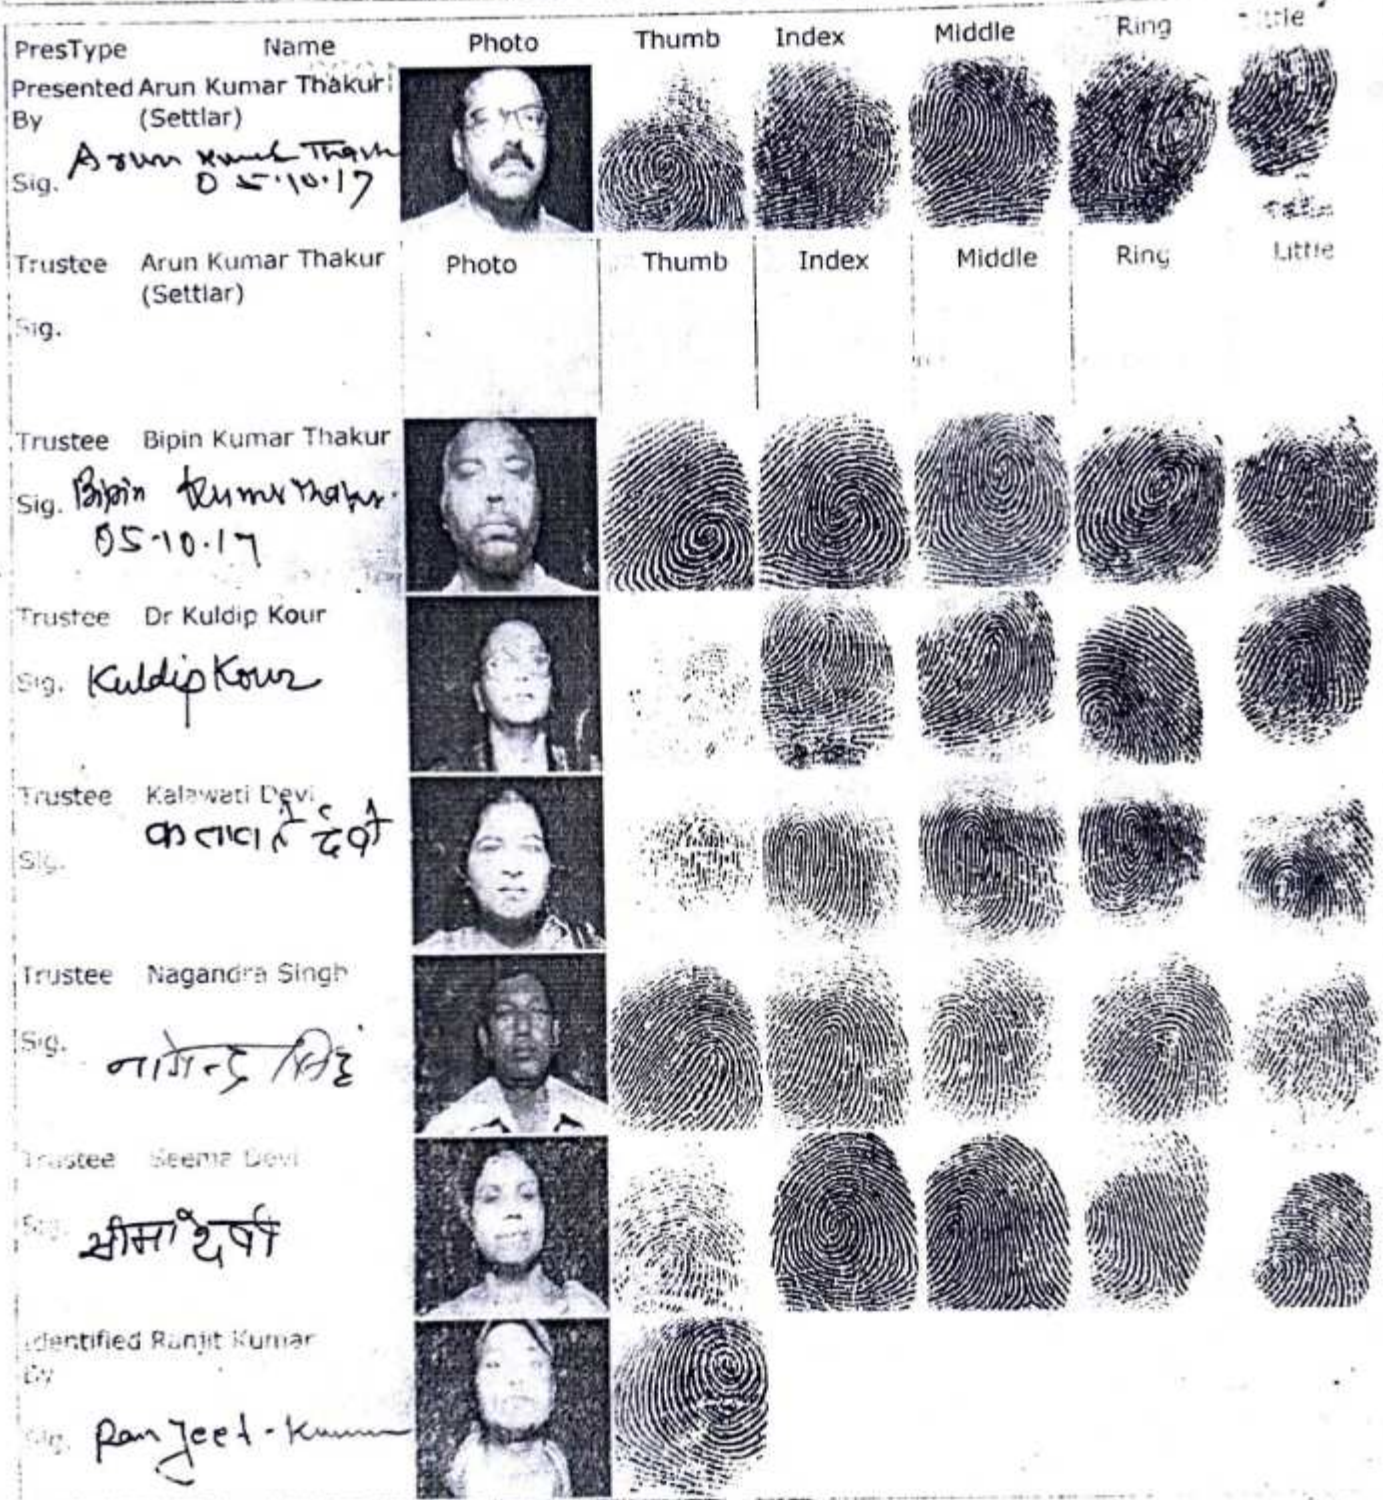 PresType Name Photo Thumb Index Middle Ring Little
Presented Arun Kumar Thakur
By (Settlar)
Sig. Arun Kumar Thakur
05.10.17
Trustee Arun Kumar Thakur Photo Thumb Index Middle Ring Little
(Settlar)
Sig.
Trustee Bipin Kumar Thakur
Sig. Bipin Kumar Thakur.
05.10.17
Trustee Dr Kuldip Kour
Sig. Kuldip Kour
Trustee Kalawati Devi
कलावती देवी
Sig.
Trustee Nagandra Singh
Sig.
नागेन्द्र सिंह
Trustee Seema Devi
Sig. सीमा देवी
Identified Ranjit Kumar
By
Sig. Ranjeet-Kumar